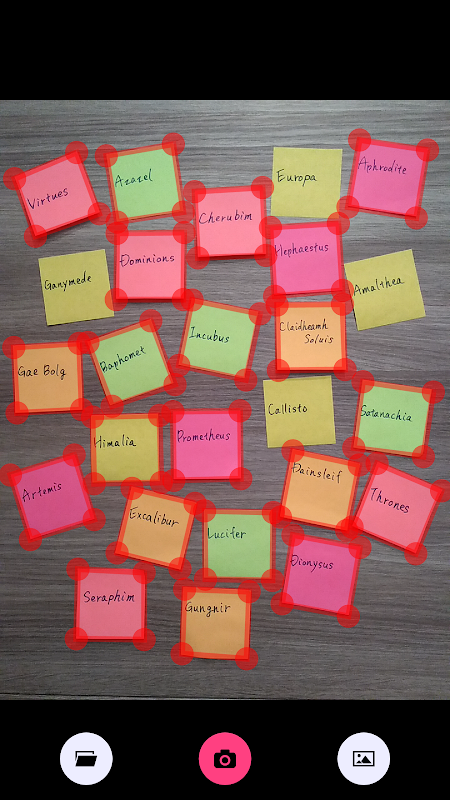 Virtues
Azazel
Cherubim
Europa
Aphrodite
Ganymede
Dominions
Hephaestus
Amalthea
Gae Bolg
Baphomet
Incubus
Claidheamh
Soluis
Himalia
Prometheus
Callisto
Satanachia
Artemis
Excalibur
Lucifer
Dainsleif
Thrones
Dionysus
Seraphim
Gungnir